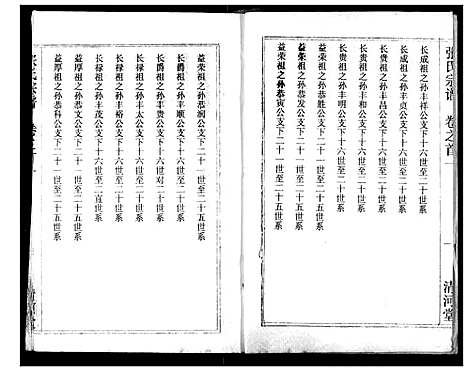 张氏宗谱 卷之首
一 清河堂
长成祖之孙丰祥公支下十六世至二十世系
长成祖之孙丰贞公支下十六世至二十世系
长贵祖之孙丰昌公支下十六世至二十世系
长贵祖之孙丰和公支下十六世至二十世系
长贵祖之孙丰明公支下十六世至二十世系
益荣祖之孙恭胜公支下二十一世至二十五世系
益荣祖之孙恭发公支下二十一世至二十五世系
益荣祖之孙恭寅公支下二十一世至二十五世系
益荣祖之孙恭润公支下二十一世至二十五世系
长爵祖之孙丰顺公支下十六世至二十世系
长爵祖之孙丰贵公支下十六世对二十世系
长禄祖之孙丰太公支下十六世至二十世系
长禄祖之孙丰裕公支下十六世至二十世系
长禄祖之孙丰茂公支下十六世至二直世系
益厚祖之孙恭文公支下二十一世至二十五世系
益厚祖之孙恭科公支下二十一世至二十五世系